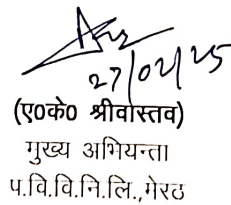 27/02/25
(ए०के० श्रीवास्तव)
मुख्य अभियन्ता
प.वि.वि.नि.लि.,मेरठ